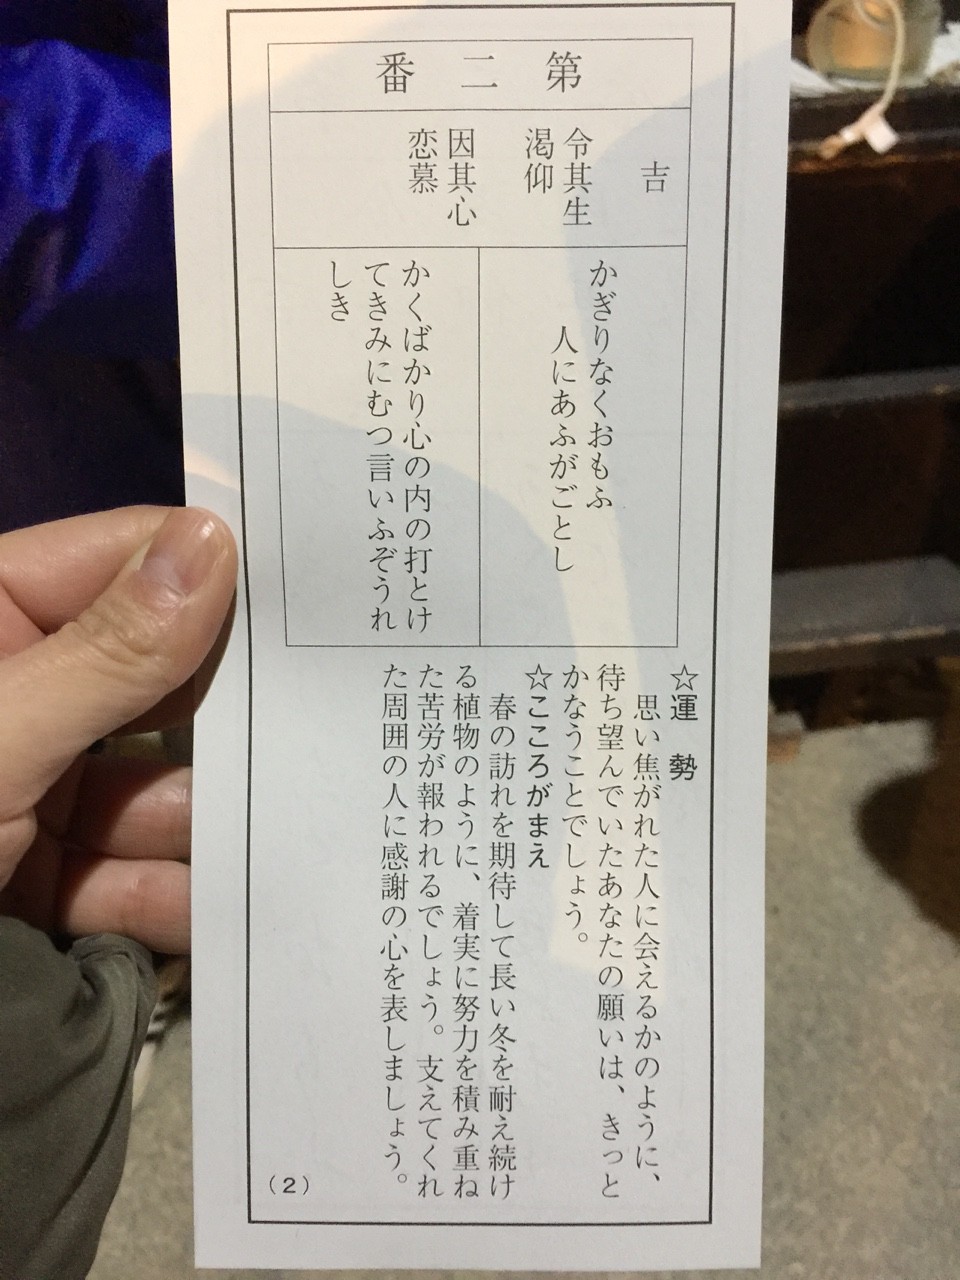 第二番
吉
令其生
渇仰
因其心
恋慕
かぎりなくおもふ
人にあふがごとし
かくばかり心の内の打とけ
てきみにむつ言いふぞうれ
しき
☆運勢
思い焦がれた人に会えるかのように、
待ち望んでいたあなたの願いは、きっと
かなうことでしょう。
☆こころがまえ
春の訪れを期待して長い冬を耐え続け
る植物のように、着実に努力を積み重ね
た苦労が報われるでしょう。支えてくれ
た周囲の人に感謝の心を表しましょう。
(2)